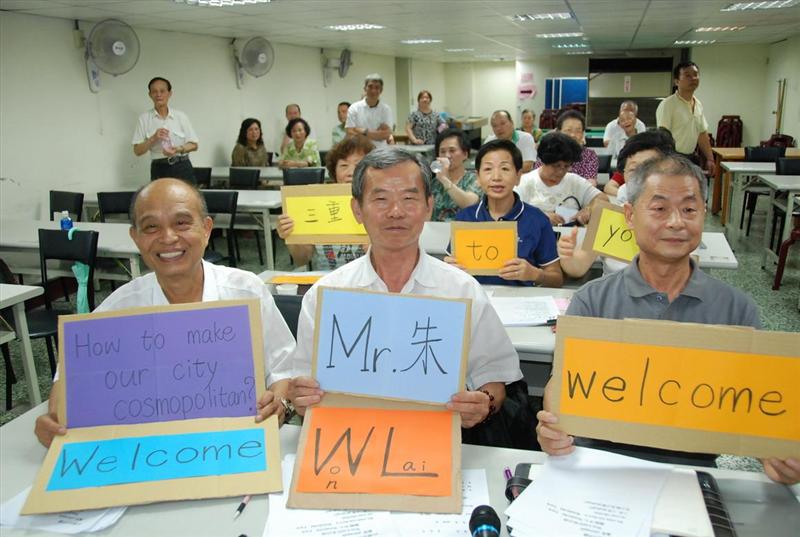 三重
to
yo
How to make
our city
cosmopolitan?
Welcome
Mr. 朱
Won Lai
welcome